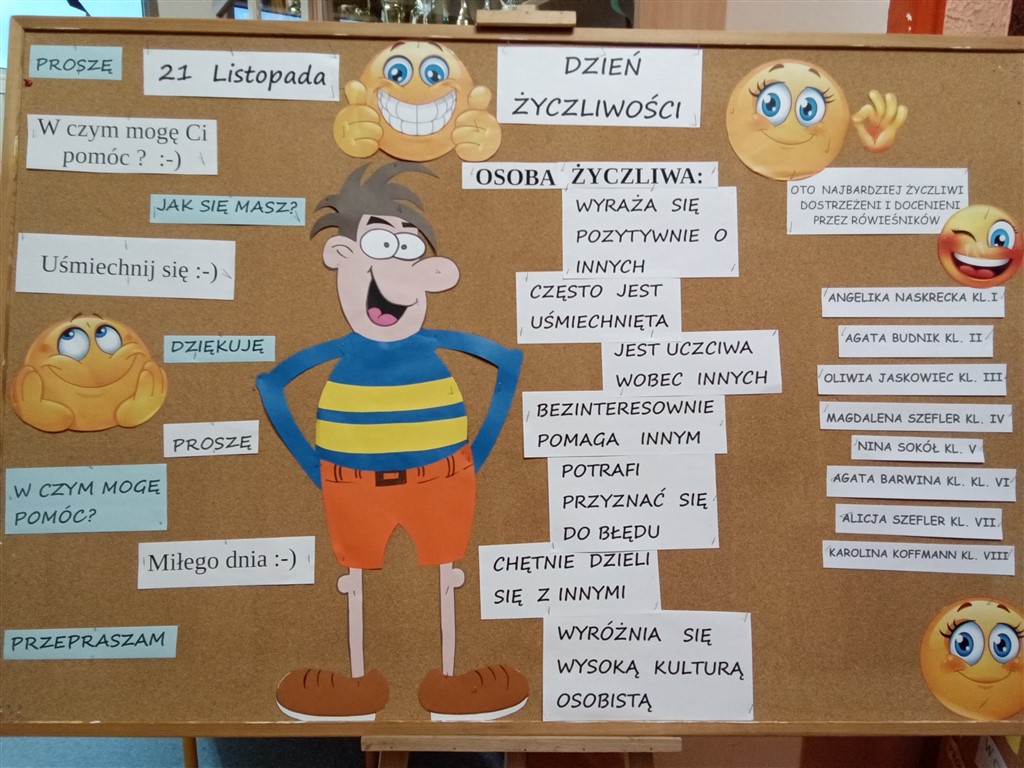 PROSZĘ
21 Listopada
W czym mogę Ci
pomóc ? :-)
JAK SIĘ MASZ?
Uśmiechnij się :-)
DZIĘKUJĘ
PROSZĘ
W CZYM MOGĘ
POMÓC?
Miłego dnia :-)
PRZEPRASZAM
DZIEŃ
ŻYCZLIWOŚCI
OSOBA ŻYCZLIWA:
WYRAŻA SIĘ
POZYTYWNIE O
INNYCH
CZĘSTO JEST
UŚMIECHNIĘTA
JEST UCZCIWA
WOBEC INNYCH
BEZINTERESOWNIE
POMAGA INNYM
POTRAFI
PRZYZNAĆ SIĘ
DO BŁĘDU
CHĘTNIE DZIELI
SIĘ Z INNYMI
WYRÓŻNIA SIĘ
WYSOKĄ KULTURĄ
OSOBISTĄ
OTO NAJBARDZIEJ ŻYCZLIWI
DOSTRZEŻENI I DOCENIENI
PRZEZ RÓWIEŚNIKÓW
ANGELIKA NASKRECKA KL.I
AGATA BUDNIK KL. II
OLIWIA JASKOWIEC KL. III
MAGDALENA SZEFLER KL. IV
NINA SOKÓŁ KL. V
AGATA BARWINA KL. KL. VI
ALICJA SZEFLER KL. VII
KAROLINA KOFFMANN KL. VIII